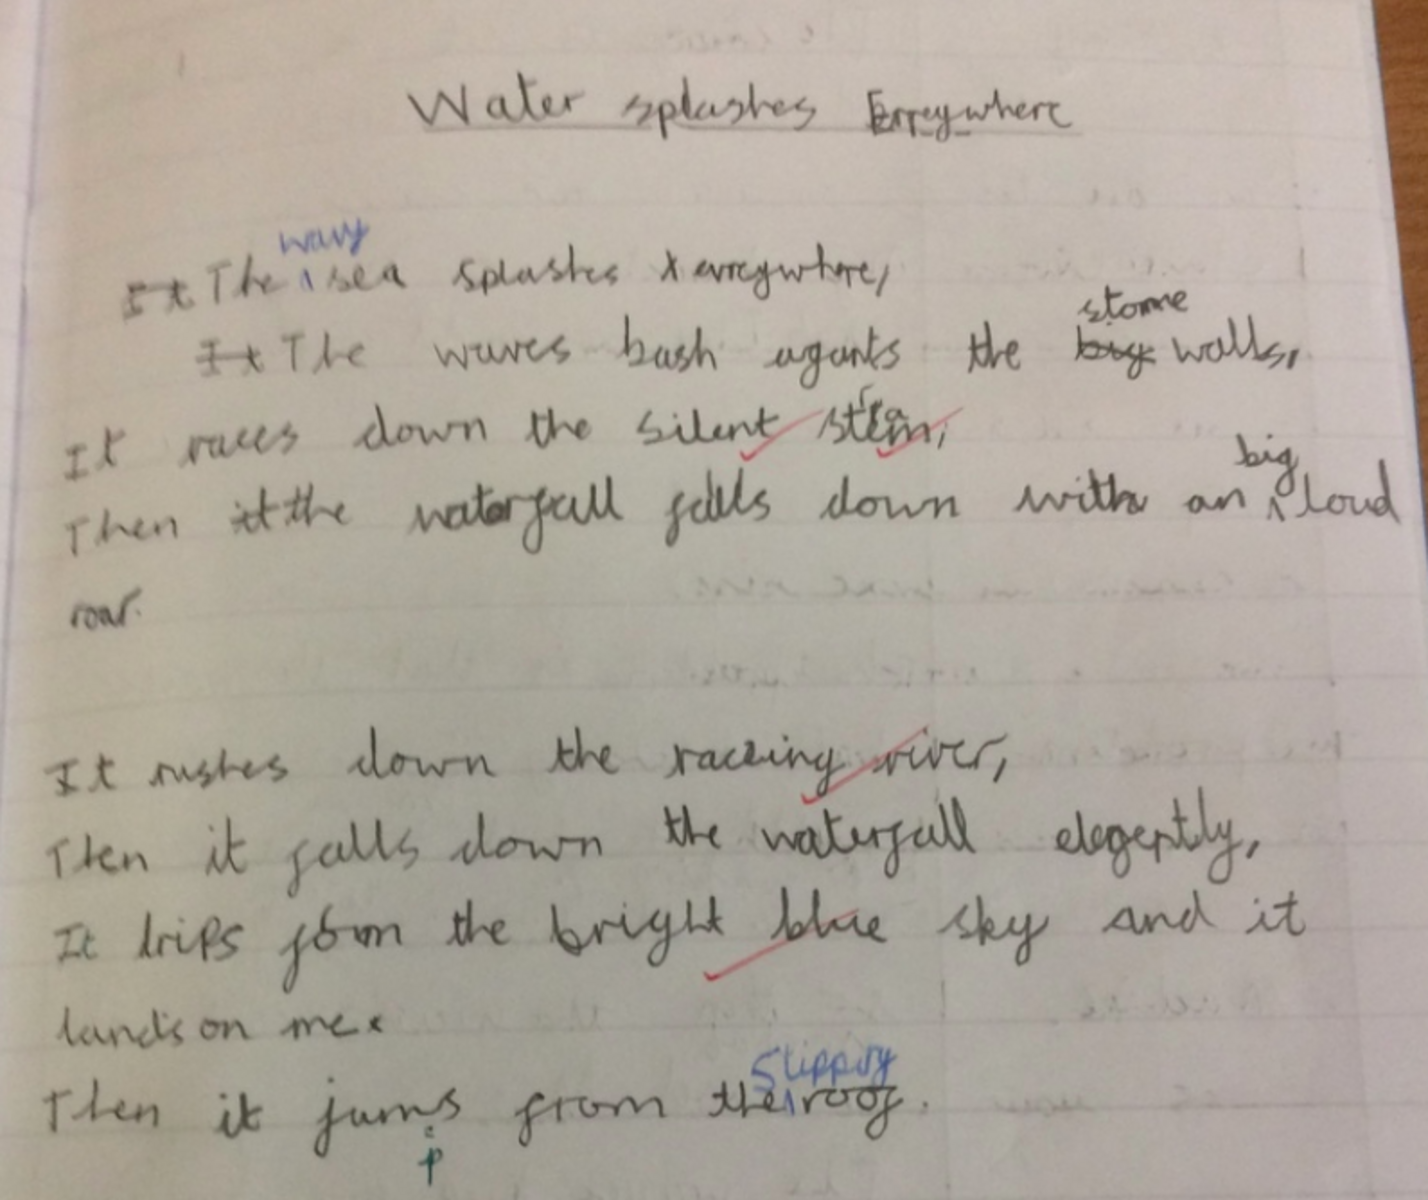 Water splashes Erreywhere
wavy
It The sea splashes x erreywhere,
stome
It The waves bash agants the big walls,
It races down the silent stem,
big
Then it the waterfall falls down with an loud
roar.
It rushes down the raceing river,
Then it falls down the waterfall elegently,
It drips from the bright blue sky and it
lands on me.
Slippry
Then it jums from the roof.
p